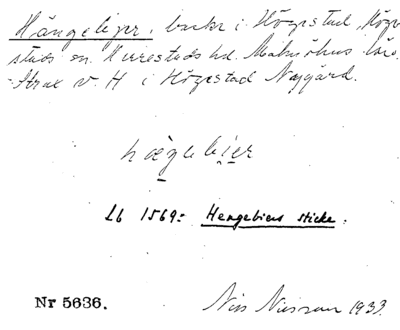 Hängebjer, backe i Högestad, Höge-
stads sn. Herrestads hd. Malmöhus län.
Strax v. H i Högestad Nygård.
hægebier
Lb 1569: Hengebiers sticke.
Nr 5636.
Nils Nilsson 1933